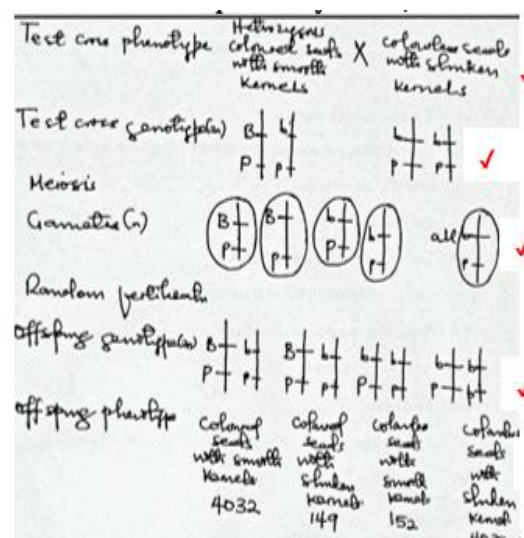 Test cross phenotype Heterozygous coloured seeds with smooth kernels X colourless seeds with shrunken kernels
Test cross genotype(2n) B b b b
P p p p
Meiosis
Gametes (n) B B b b all b
P p P p p
Random
Offspring genotype(2n) B b B b b b b b
P p p p P p p p
Offspring phenotype
coloured seeds with smooth kernels 4032
coloured seeds with shrunken kernels 149
colourless seeds with smooth kernels 152
seeds with shrunken